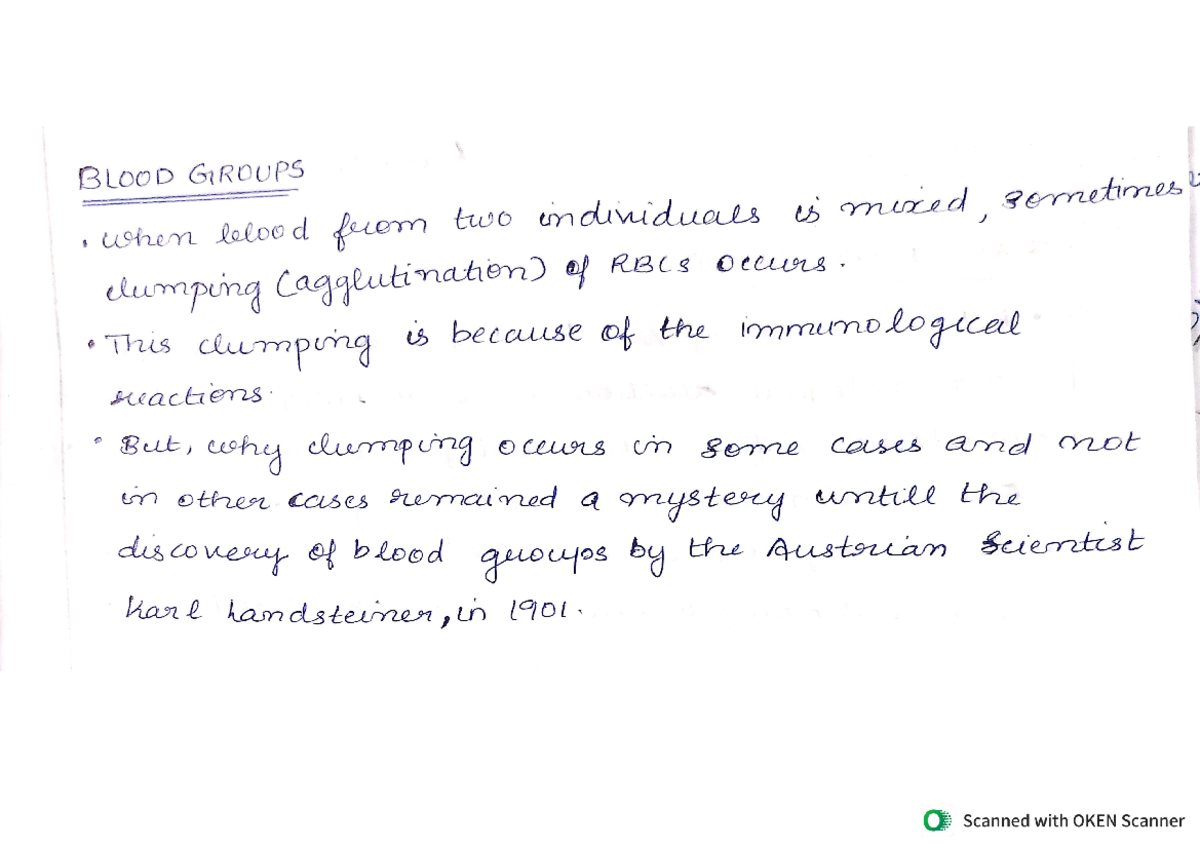 BLOOD GROUPS
• When blood from two individuals is mixed, sometimes
clumping (agglutination) of RBCs occurs.
• This clumping is because of the immunological
reactions.
• But, why clumping occurs in some cases and not
in other cases remained a mystery untill the
discovery of blood groups by the Austrian Scientist
Karl Landsteiner, in 1901.
Scanned with OKEN Scanner